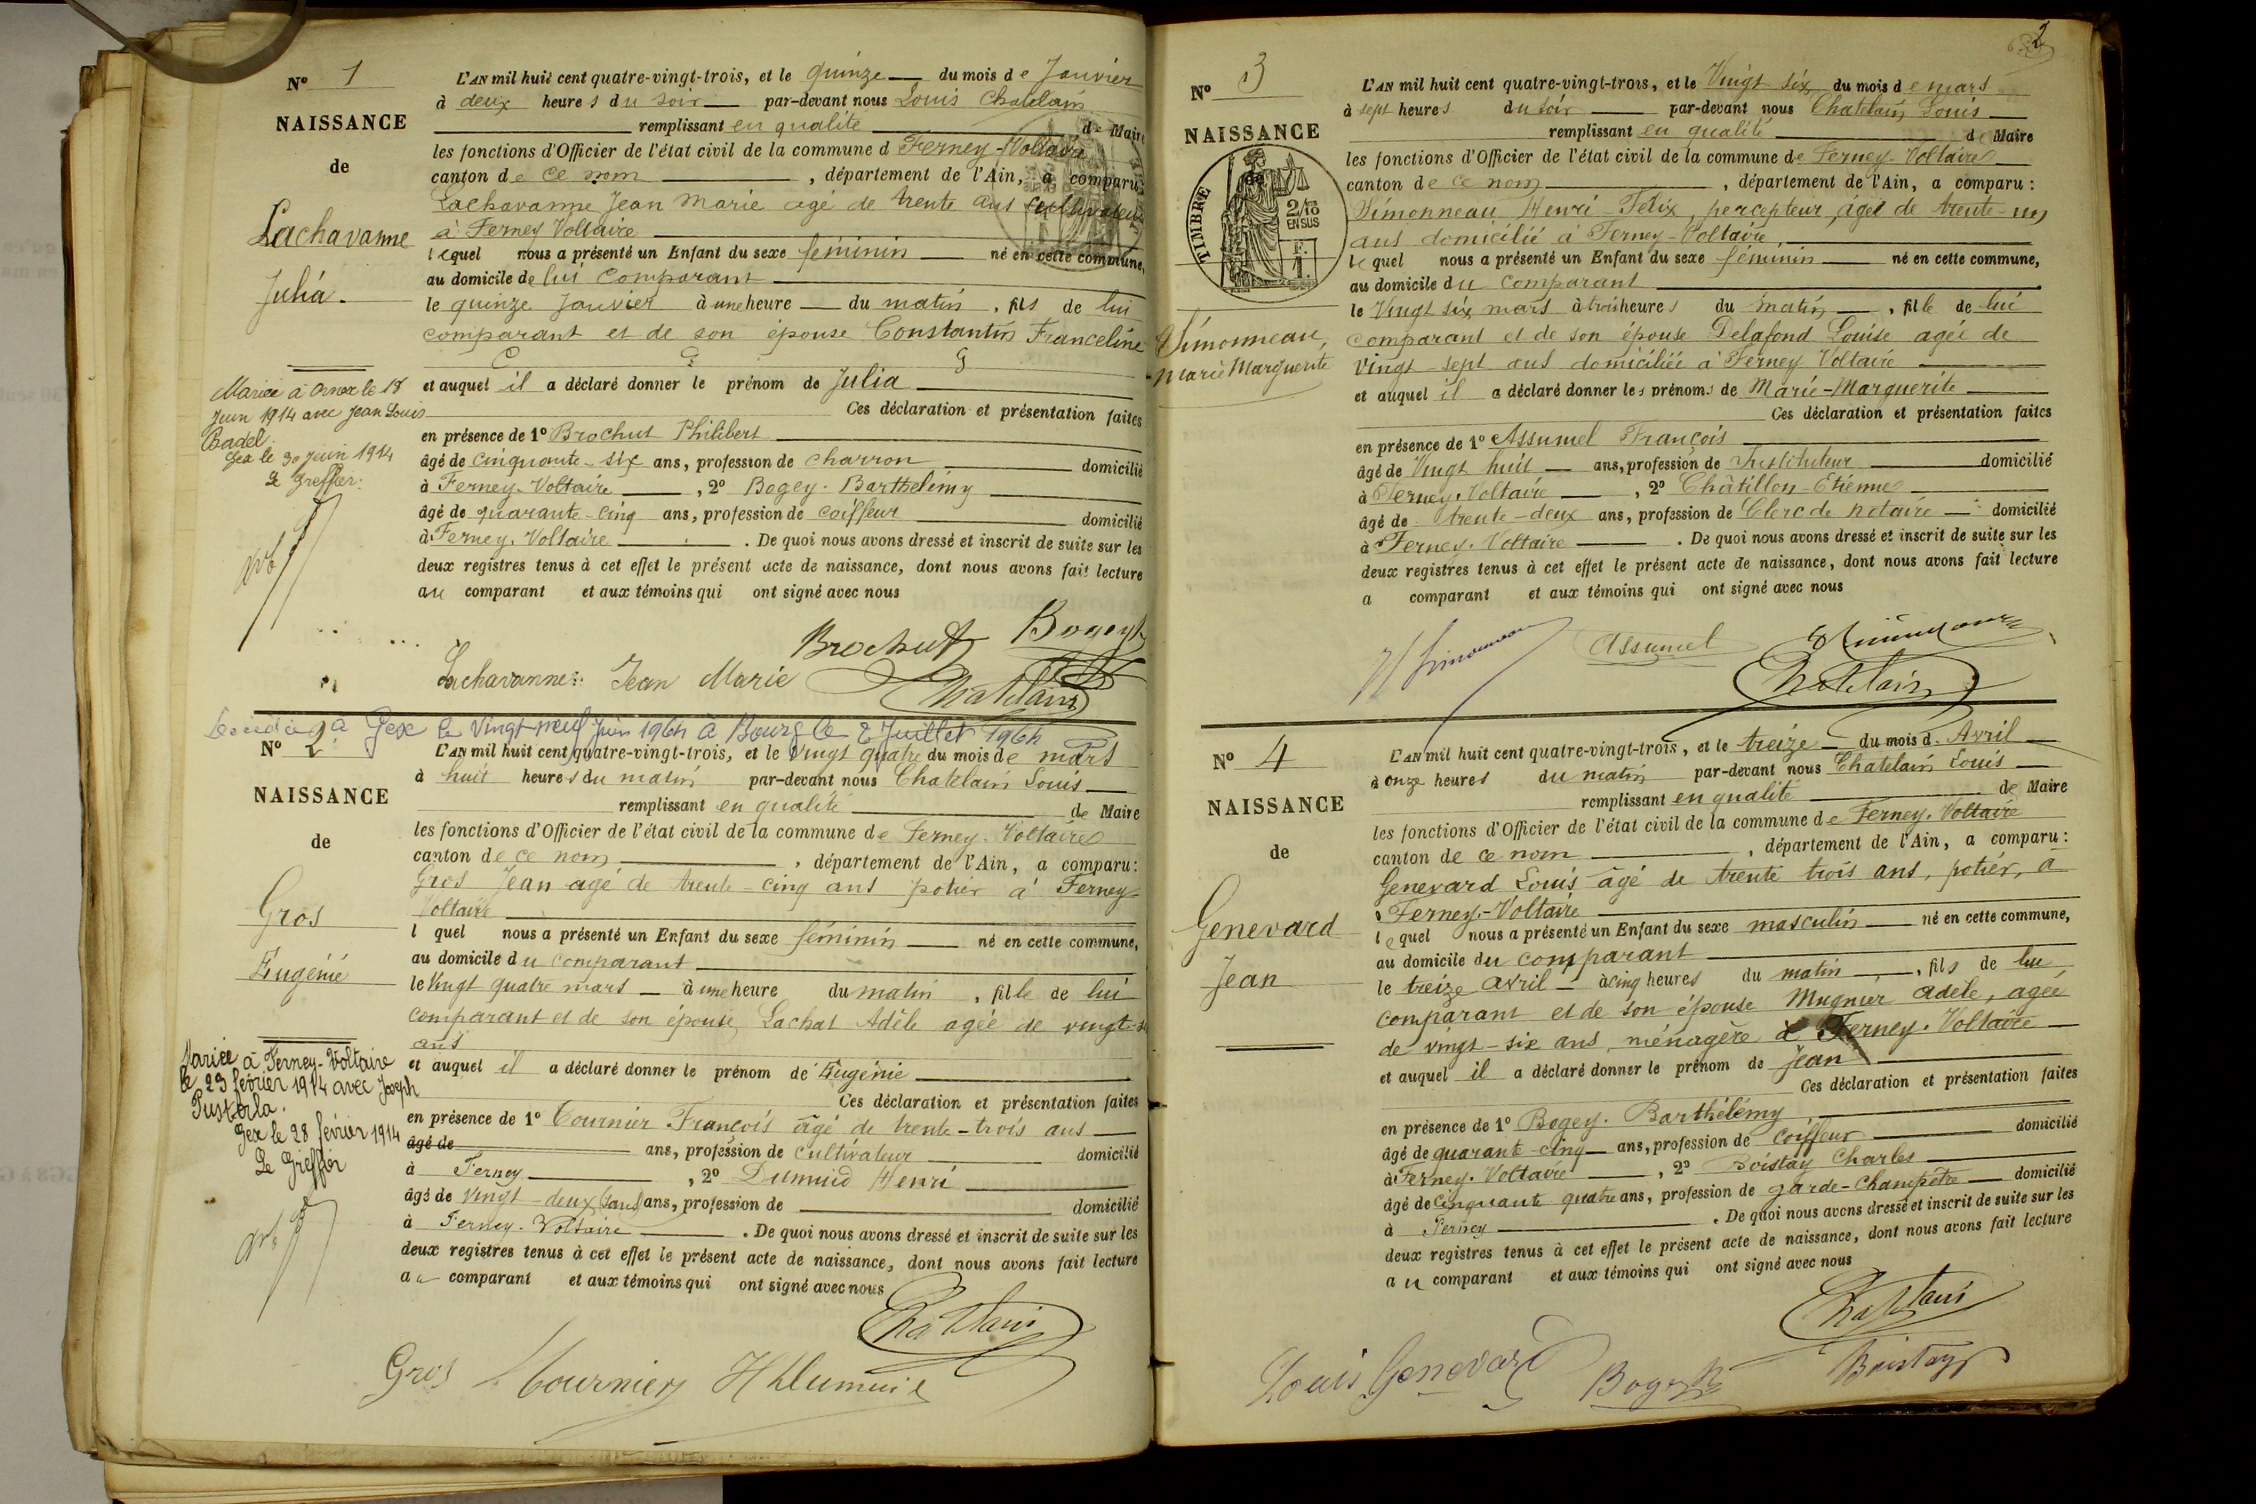 N° 1
NAISSANCE
de
Lachavanne
Julia.
Mariée à Ornex le 18
Juin 1914 avec Jean Louis
Gex le 30 juin 1914
Le Greffier:
L'AN mil huit cent quatre-vingt-trois, et le quinze du mois de Janvier
à deux heures du soir par-devant nous Louis Chatelain
remplissant en qualité de Maire
les fonctions d'Officier de l'état civil de la commune d Ferney-Voltaire
canton de ce nom, département de l'Ain, a comparu:
Lachavanne Jean Marie agé de trente ans cultivateur
à Ferney Voltaire
lequel nous a présenté un Enfant du sexe féminin né en cette commune,
au domicile de lui comparant
le quinze Janvier à une heure du matin, fils de lui
comparant et de son épouse Constantin Franceline
et auquel il a déclaré donner le prénom de Julia
Ces déclaration et présentation faites
en présence de 1° Brochut Philibert
âgé de cinquante-six ans, profession de charron domicilié
à Ferney-Voltaire, 2° Bogey Barthélémy
âgé de quarante-cinq ans, profession de coiffeur domicilié
à Ferney-Voltaire. De quoi nous avons dressé et inscrit de suite sur les
deux registres tenus à cet effet le présent acte de naissance, dont nous avons fait lecture
au comparant et aux témoins qui ont signé avec nous
Brochut Bogey
Lachavanne Jean Marie Chatelain
à Gex le vingt-neuf Juin 1964 à Bourg le 2 Juillet 1964
N° 2
NAISSANCE
de
Gros
Eugénie
Mariée à Ferney-Voltaire
le 23 février 1914 avec Joseph
Pusterla.
Gex le 28 février 1914
Le Greffier
L'AN mil huit cent quatre-vingt-trois, et le vingt quatre du mois de mars
à huit heures du matin par-devant nous Chatelain Louis
remplissant en qualité de Maire
les fonctions d'Officier de l'état civil de la commune de Ferney-Voltaire
canton de ce nom, département de l'Ain, a comparu:
Gros Jean agé de trente-cinq ans potier à Ferney
Voltaire
l quel nous a présenté un Enfant du sexe féminin né en cette commune,
au domicile du comparant
le Vingt quatre mars à une heure du matin, fille de lui
comparant et de son épouse Lachat Adèle agée de
ans
et auquel il a déclaré donner le prénom de Eugénie
Ces déclaration et présentation faites
en présence de 1° Tournier François âgé de trente-trois ans
âgé de ans, profession de cultivateur domicilié
à Ferney, 2° Dumuid Henri
âgé de vingt-deux (ans) ans, profession de domicilié
à Ferney-Voltaire. De quoi nous avons dressé et inscrit de suite sur les
deux registres tenus à cet effet le présent acte de naissance, dont nous avons fait lecture
au comparant et aux témoins qui ont signé avec nous
Chatelain
Gros Tournier H Dumuid
2
N° 3
NAISSANCE
de
TIMBRE
2/10
EN SUS
Simonneau,
Marie Marguerite
L'AN mil huit cent quatre-vingt-trois, et le Vingt six du mois de mars
à sept heures du soir par-devant nous Chatelain Louis
remplissant en qualité de Maire
les fonctions d'Officier de l'état civil de la commune de Ferney-Voltaire
canton de ce nom, département de l'Ain, a comparu:
Simonneau Henri-Félix, percepteur, âgé de trente-un
ans domicilié à Ferney-Voltaire
lequel nous a présenté un Enfant du sexe féminin né en cette commune,
au domicile du comparant
le Vingt six mars à trois heures du matin, fille de lui
comparant et de son épouse Delafond Louise agée de
vingt-sept ans domiciliée à Ferney Voltaire
et auquel il a déclaré donner les prénoms de Marie-Marguerite
Ces déclaration et présentation faites
en présence de 1° Assumel François
âgé de Vingt huit ans, profession de Instituteur domicilié
à Ferney-Voltaire, 2° Châtillon Etienne
âgé de trente-deux ans, profession de Clerc de notaire domicilié
à Ferney-Voltaire. De quoi nous avons dressé et inscrit de suite sur les
deux registres tenus à cet effet le présent acte de naissance, dont nous avons fait lecture
a comparant et aux témoins qui ont signé avec nous
H Simonneau Assumel
Chatelain
N° 4
NAISSANCE
de
Genevard
Jean
L'AN mil huit cent quatre-vingt-trois, et le treize du mois d'Avril
à onze heures du matin par-devant nous Chatelain Louis
remplissant en qualité de Maire
les fonctions d'Officier de l'état civil de la commune de Ferney-Voltaire
canton de ce nom, département de l'Ain, a comparu:
Genevard Louis âgé de trente trois ans, potier, à
Ferney-Voltaire
lequel nous a présenté un Enfant du sexe masculin né en cette commune,
au domicile du comparant
le treize avril à cinq heures du matin, fils de lui
comparant et de son épouse Mugnier Adèle, agée
de vingt-six ans, ménagère à Ferney-Voltaire
et auquel il a déclaré donner le prénom de Jean
Ces déclaration et présentation faites
en présence de 1° Bogey Barthélémy
âgé de quarante-cinq ans, profession de coiffeur domicilié
à Ferney-Voltaire, 2° Boistay Charles
âgé de Cinquante quatre ans, profession de garde-champêtre domicilié
à Ferney. De quoi nous avons dressé et inscrit de suite sur les
deux registres tenus à cet effet le présent acte de naissance, dont nous avons fait lecture
au comparant et aux témoins qui ont signé avec nous
Chatelain
Louis Genevard Bogey Boistay